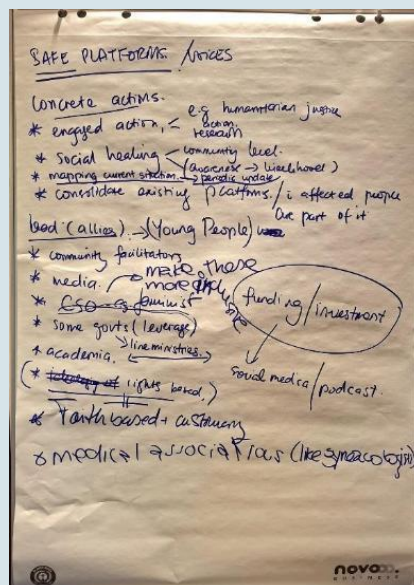 SAFE PLATFORMS/VOICES
Concrete actions.
* engaged action, e.g humanitarian justice
action research
* Social healing community level.
(awareness → livelihood)
* mapping current situation → periodic update
* consolidate existing platforms. / affected people
are part of it
(allies) → (Young People)
* community facilitators
* media. make these
more
* CSO - eg feminist
* Some govts (leverage)
→ line ministries.
* academia.
funding/
investment
Social media/
podcast.
(* rights based.)
* Faith based + customary
* medical associations (like gynaecologist)
novo
BUSINESS